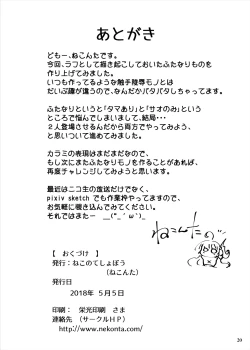 あとがき
どもー、ねこんたです。
今回、ラフとして描き起こしておいたふたなりものを
作り上げてみました。
いつも作ってるような触手陵辱モノとは
だいぶ趣が違うので、なんだかパタパタしちゃってます。
ふたなりというと「タマあり」と「サオのみ」という
ところで悩んでしまいまして、結局・・・
２人登場させるんだから両方でやってみよう、
と思いついて進めてみました。
カラミの表現はまだまだなので、
もし次にまたふたなりモノを作ることがあれば、
再度チャレンジしてみようと思います。
最近はニコ生の放送だけでなく、
pixiv sketch でも作業枠やってますので、
お気軽に覗き込んでみてください。
それではまたー __(“_´ω`)_
ねこんたの
2018
【 おくづけ 】
発行：ねこのてしょぼう
（ねこんた）
発行日
2018年 ５月５日
印刷： 栄光印刷 さま
連絡先 （サークルＨＰ）
http://www.nekonta.com/
39